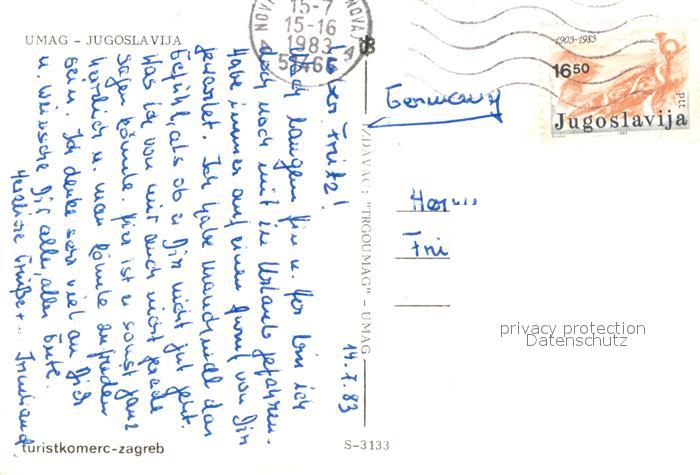 UMAG – JUGOSLAVIJA
15-7
15-16
1983
1903-1983
16 50
ptt
Jugoslavija
Germany
IZDAVAČ: "TRGOUMAG" – UMAG
Herrn
Fri
14.7.83
Lieber Fritz!
Nach langem hin u. her bin ich
doch noch mit in Urlaub gefahren.
Habe immer auf einen Anruf von Dir
gewartet. Ich habe manchmal das
Gefühl, als ob es Dir nicht gut geht.
Was ich von mir auch nicht gerade
sagen könnte. Hier ist es sonst ganz
herrlich u. man könnte zufrieden
sein. Ich denke sehr viel an Dich
u. wünsche Dir alles, alles Gute.
Herzliche Grüße
turistkomerc-zagreb
S-3133
privacy protection
Datenschutz